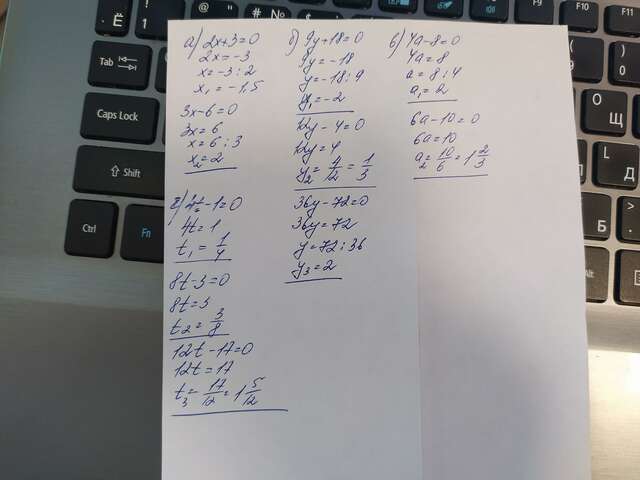 а) 2x+3=0
2x=-3
x=-3:2
x₁=-1,5
3x-6=0
3x=6
x=6:3
x₂=2
г) 4t-1=0
4t=1
t₁=1/4
8t-3=0
8t=3
t₂=3/8
12t-17=0
12t=17
t₃=17/12=1 5/12
б) 9y+18=0
9y=-18
y=-18:9
y₁=-2
12y-4=0
12y=4
y₂=4/12=1/3
36y-72=0
36y=72
y=72:36
y₃=2
в) 4a-8=0
4a=8
a=8:4
a₁=2
6a-10=0
6a=10
a₂=10/6=1 2/3
Ё
Tab
Caps Lock
Shift
Ctrl
Fn
F9
F10
F11
Щ
О
Л
Д
Б
Alt